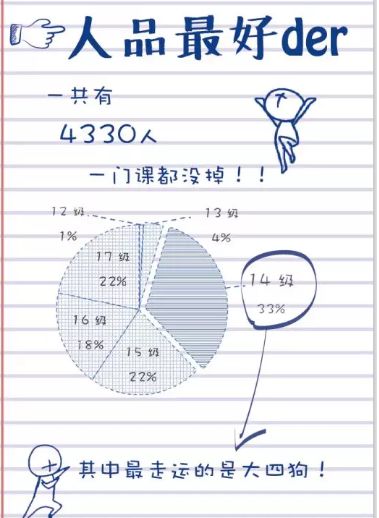 人品最好der
一共有
4330人
一门课都没掉！！
12级
1%
13级
4%
17级
22%
14级
33%
16级
18%
15级
22%
其中最走运的是大四狗！